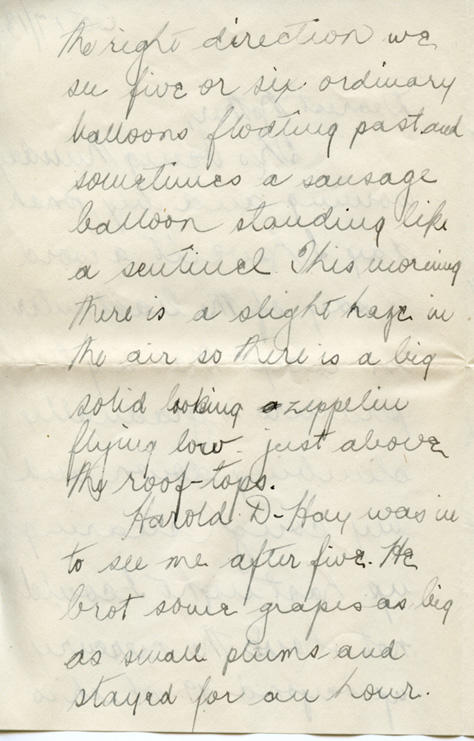 the right direction we
see five or six ordinary
balloons floating past and
sometimes a sausage
balloon standing like
a sentinel. This morning
there is a slight haze in
the air so there is a big
solid looking zeppelin
flying low just above
the roof-tops.
Harold D-Hay was in
to see me after five. He
brot some grapes as big
as small plums and
stayed for an hour.